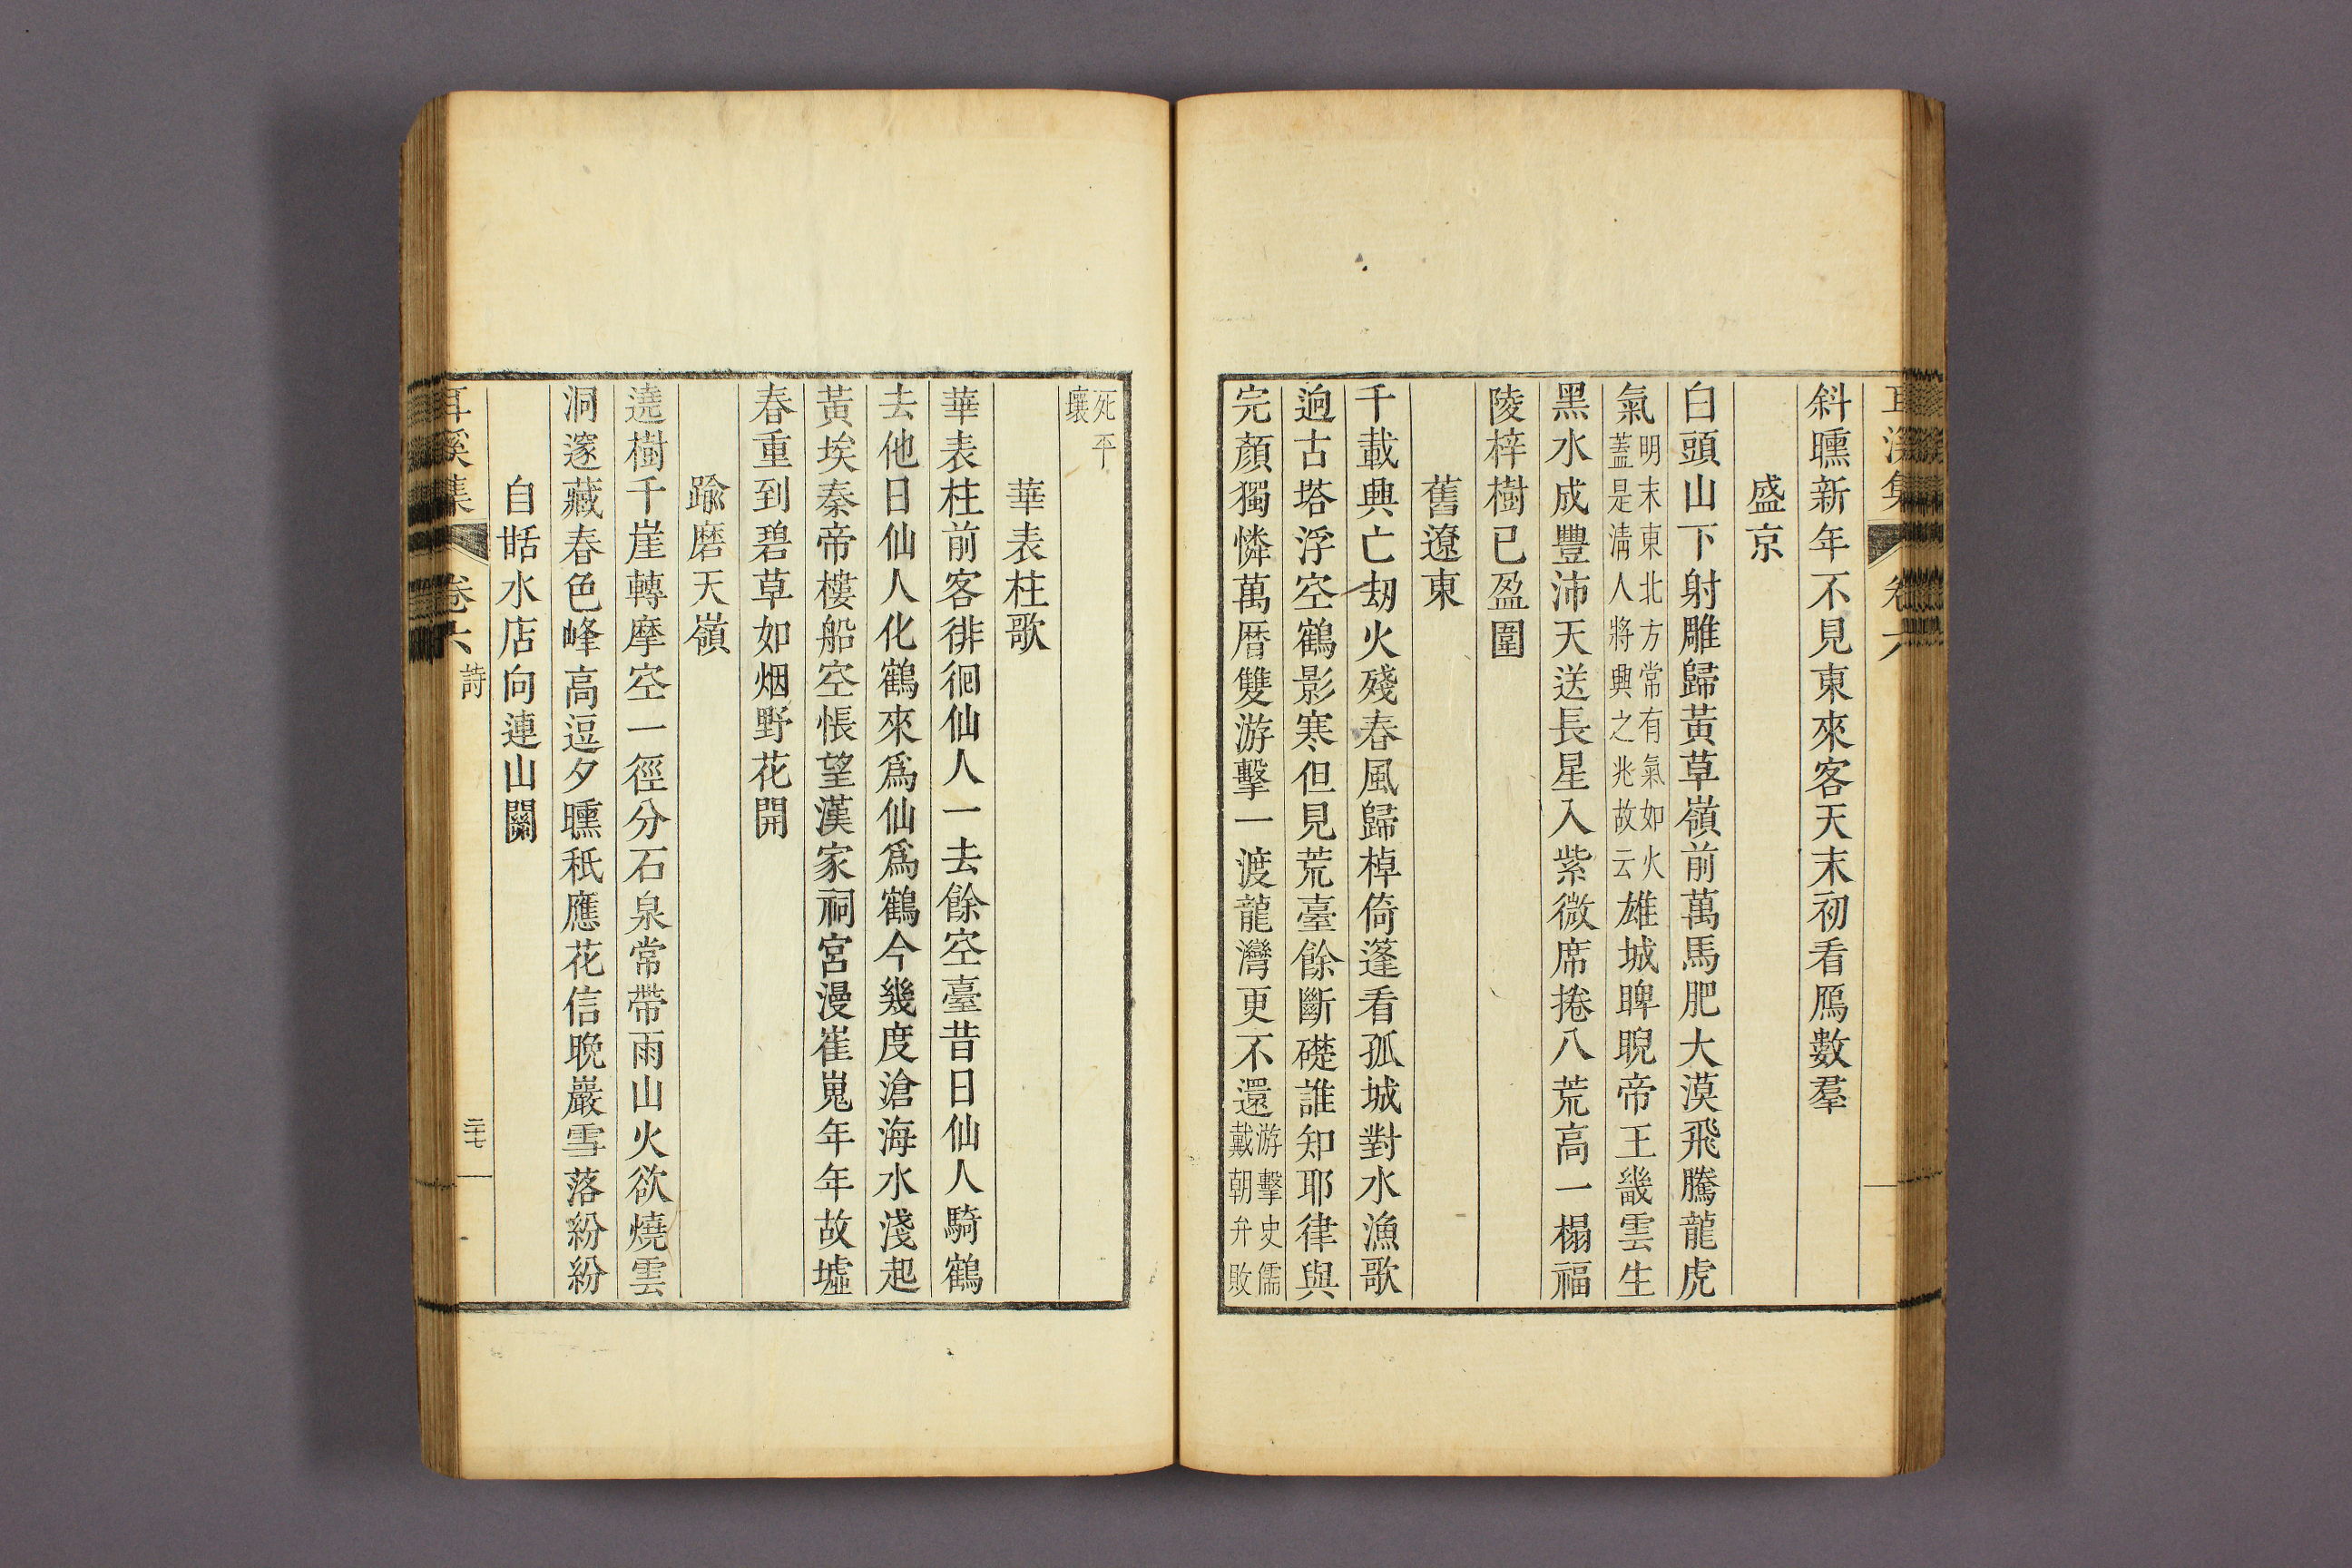 斜曛新年不見東來客天末初看鴈數羣
盛京
白頭山下射雕歸黃草嶺前萬馬肥大漠飛騰龍虎
氣明末東北方常有氣如火蓋是淸人將興之兆故云雄城睥睨帝王畿雲生
黑水成豐沛天送長星入紫微席捲八荒高一榻福
陵梓樹已盈圍
舊遼東
千載興亡刼火殘春風歸棹倚蓬看孤城對水漁歌
逈古塔浮空鶴影寒但見荒臺餘斷礎誰知耶律與
完顏獨憐萬曆雙游擊一渡龍灣更不還游擊史儒戴朝弁敗
死平壤
華表柱歌
華表柱前客徘徊仙人一去餘空臺昔日仙人騎鶴
去他日仙人化鶴來爲仙爲鶴今幾度滄海水淺起
黃埃秦帝樓船空悵望漢家祠宮漫崔嵬年年故墟
春重到碧草如烟野花開
踰磨天嶺
遶樹千崖轉摩空一徑分石泉常帶雨山火欲燒雲
洞邃藏春色峰高逗夕曛秖應花信晚巖雪落紛紛
自甛水店向連山關
耳溪集 卷六 詩 二十七